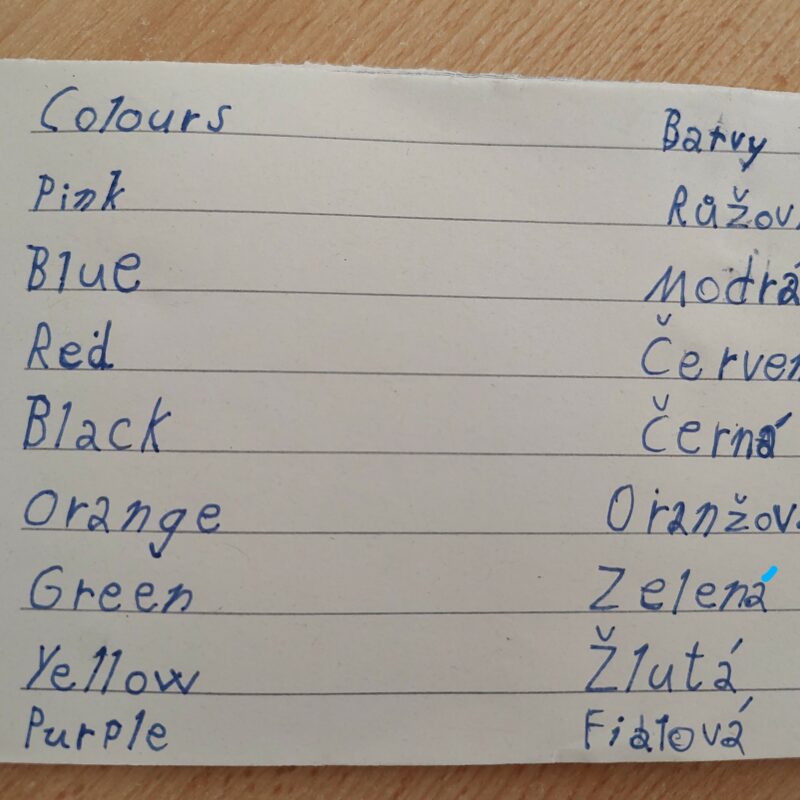 Colours Barvy
Pink Růžov
Blue Modrá
Red Červen
Black Černá
Orange Oranžová
Green Zelená
Yellow Žlutá
Purple Fialová